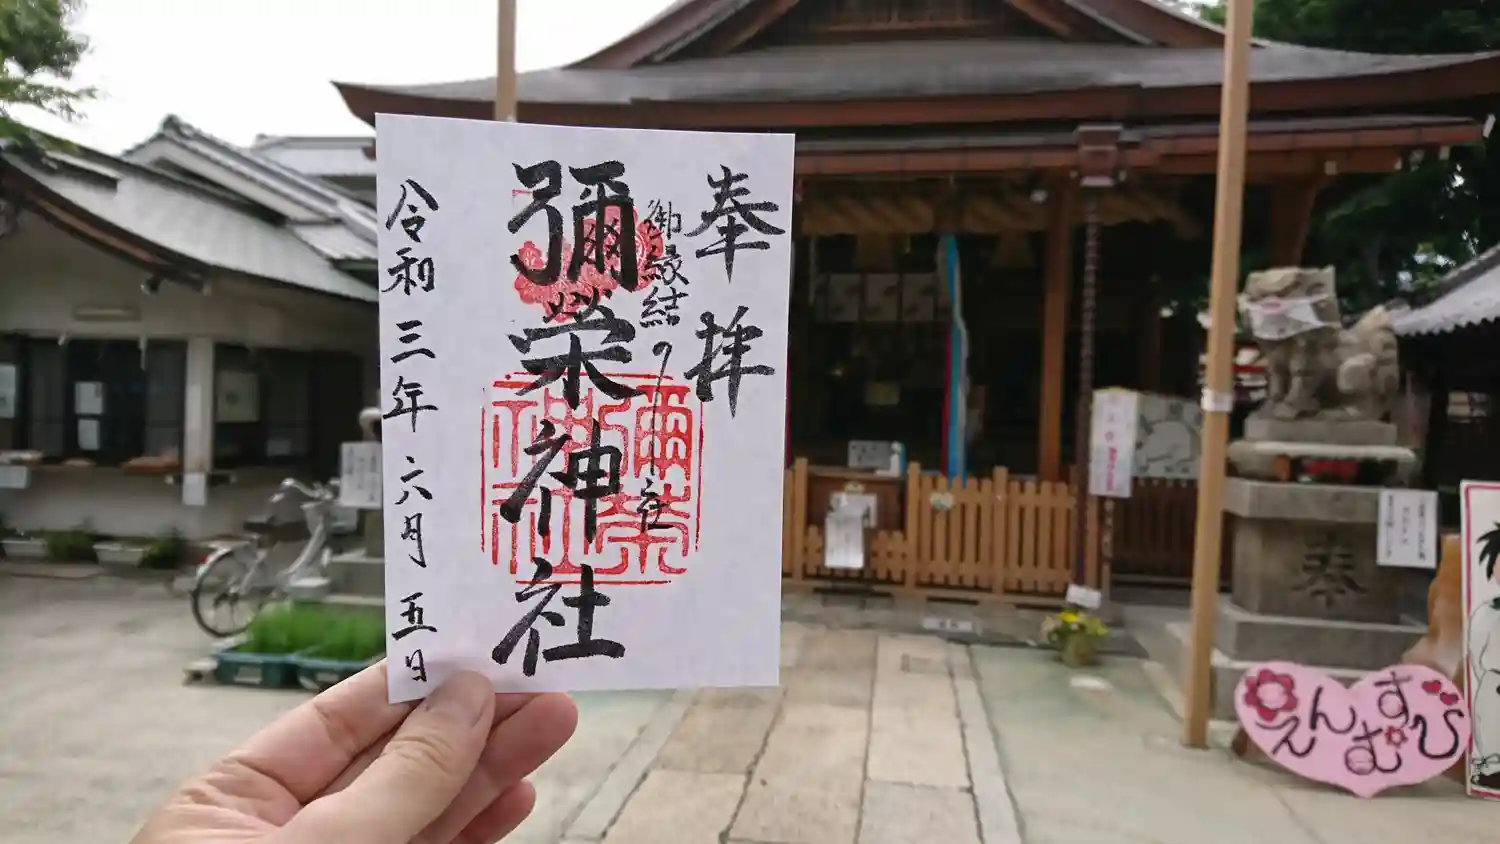 奉拝
御縁結びの社
彌榮神社
彌榮神社
令和三年六月五日
奉
えんむすび